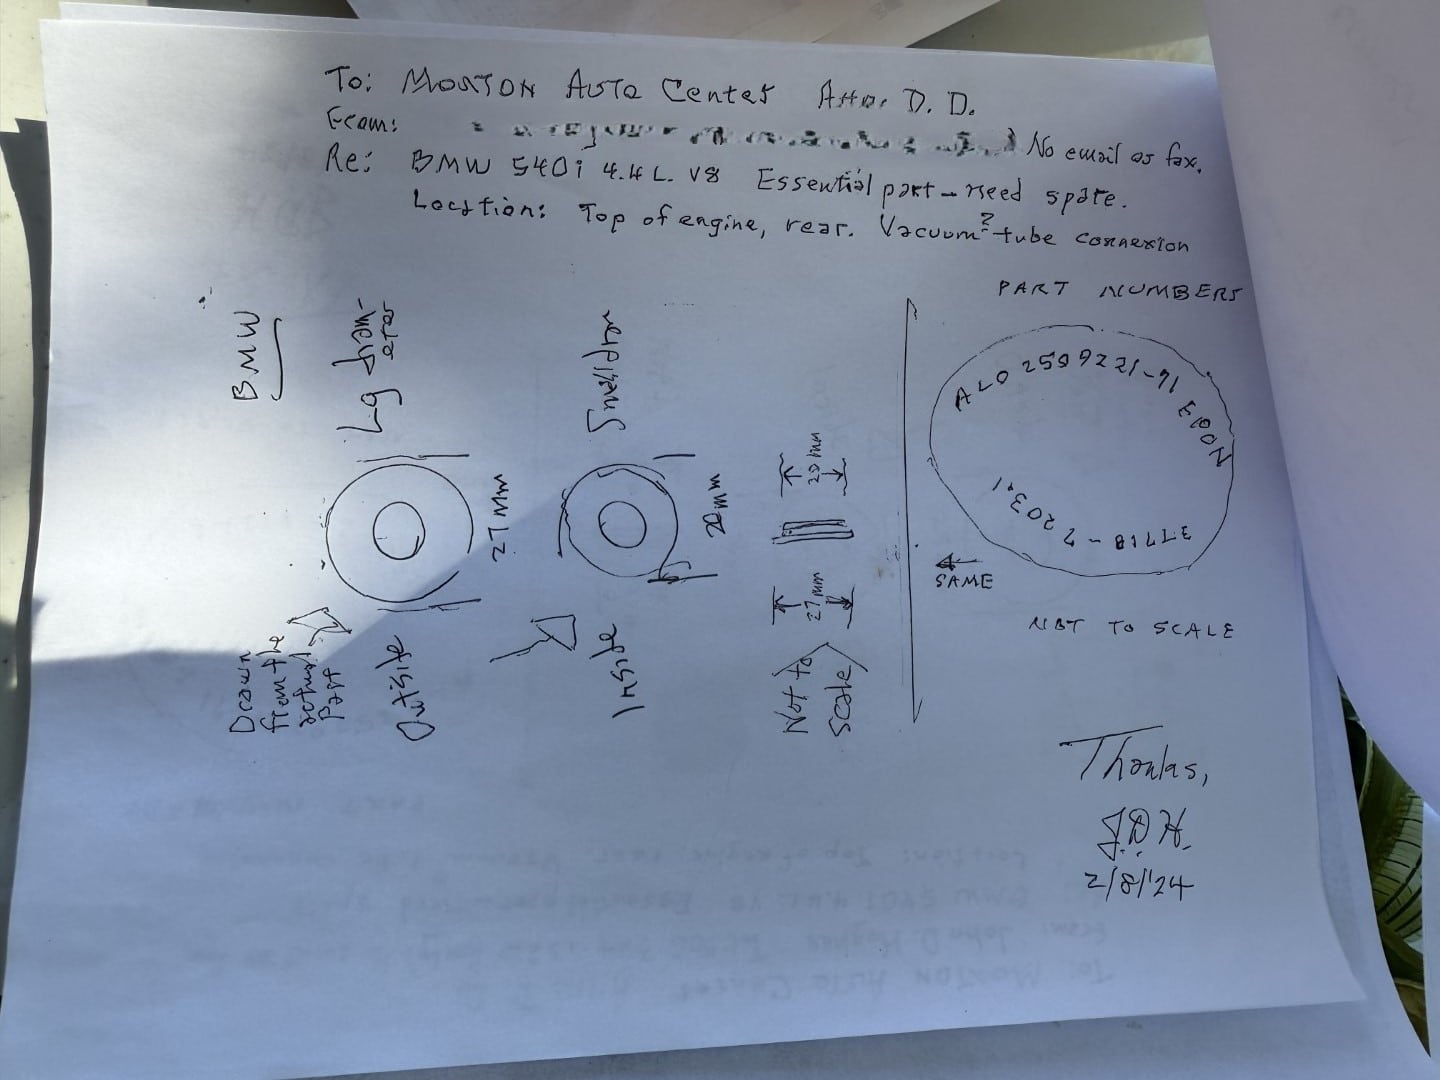 To: MORTON AUTO Center Attn. D. D.
From: No email or fax.
Re: BMW 540i 4.4 L. V8 Essential part - need spare.
Location: Top of engine, rear. Vacuum? tube connexion
BMW
Lg diam-
eter
27 mm
Outside
Drawn
from the
actual
Part
Small diam
20 mm
Inside
20 mm
27 mm
Not to
scale
PART NUMBERS
ALO 2509221-71
SAME
NOT TO SCALE
Thanks,
J.D.H.
2/8/'24